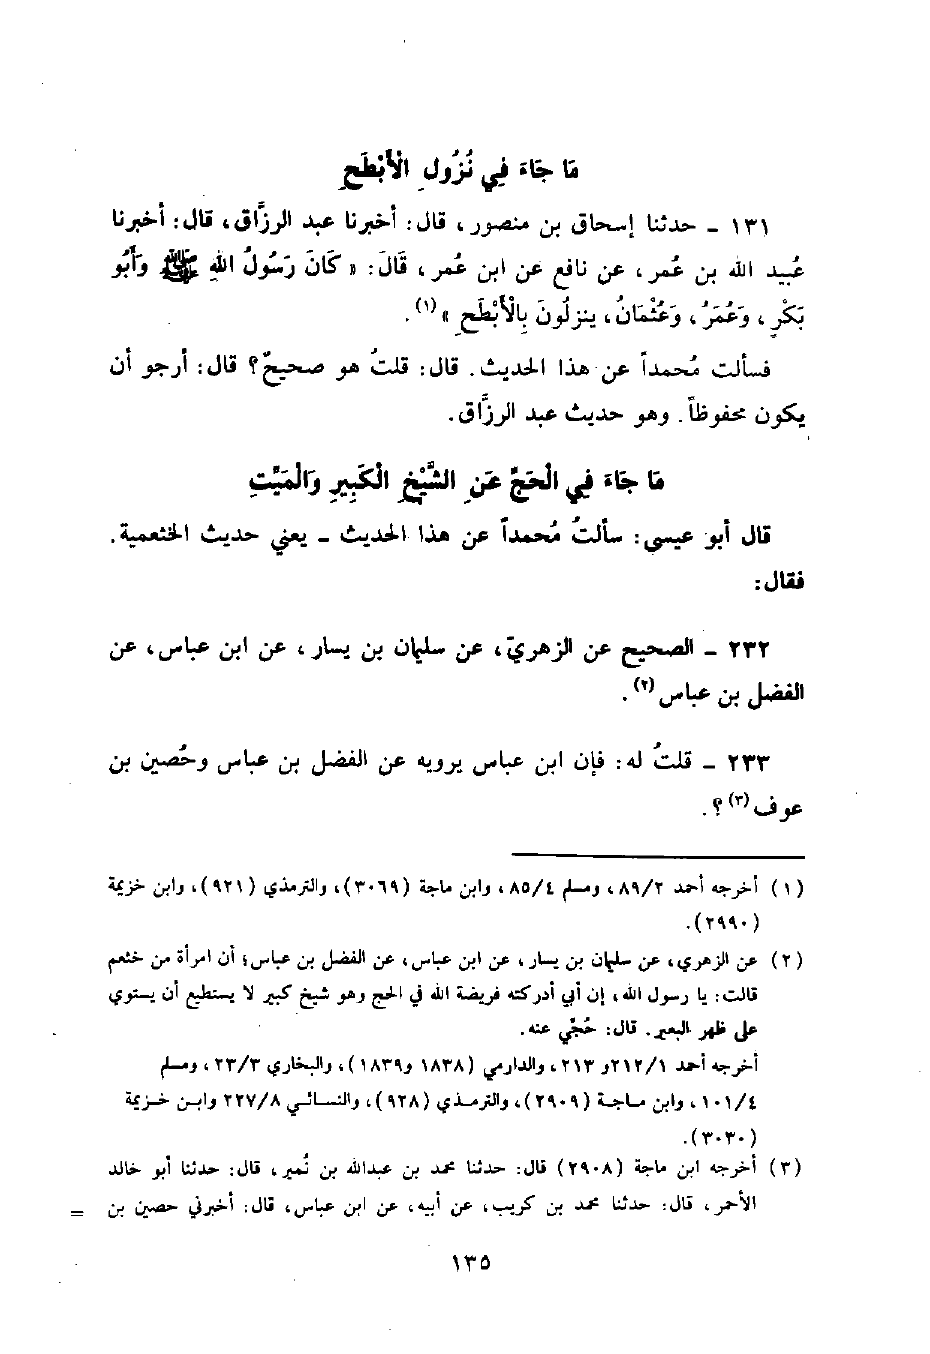 مَا جَاءَ فِي نُزُولِ الْأَبْطَحِ
١٣١ - حدثنا إسحاق بن منصور، قال: أخبرنا عبد الرزَّاق، قال: أخبرنا
عُبيد الله بن عُمر، عن نافع عن ابن عُمر، قَالَ: « كَانَ رَسُولُ اللهِ ﷺ وَأَبُو
بَكْرٍ، وَعُمَرُ، وَعُثْمَانُ، ينزلُونَ بِالْأَبْطَحِ »(١).
فسألت مُحمداً عن هذا الحديث. قال: قلتُ هو صحيحٌ؟ قال: أرجو أن
يكون محفوظاً. وهو حديث عبد الرزَّاق.
مَا جَاءَ فِي الْحَجِّ عَنِ الشَّيْخِ الْكَبِيرِ وَالْمَيِّتِ
قال أبو عيسى: سألتُ مُحمداً عن هذا الحديث - يعني حديث الخثعمية.
فقال:
٢٣٢ - الصحيح عن الزهريّ، عن سليمان بن يسار، عن ابن عباس، عن
الفضل بن عباس(٢).
٢٣٣ - قلتُ له: فإن ابن عباس يرويه عن الفضل بن عباس وحُصين بن
عوف(٣)؟.
(١) أخرجه أحمد ٨٩/٢، ومسلم ٨٥/٤، وابن ماجة (٣٠٦٩)، والترمذي (٩٢١)، وابن خزيمة
(٢٩٩٠).
(٢) عن الزهري، عن سليمان بن يسار، عن ابن عباس، عن الفضل بن عباس؛ أن امرأة من خثعم
قالت: يا رسول الله، إن أبي أدركته فريضة الله في الحج وهو شيخ كبير لا يستطيع أن يستوي
على ظهر البعير. قال: حُجِّي عنه.
أخرجه أحمد ٢١٢/١ و٢١٣، والدارمي (١٨٣٨ و١٨٣٩)، والبخاري ٢٣/٣، ومسلم
١٠١/٤، وابن ماجة (٢٩٠٩)، والترمذي (٩٢٨)، والنسائي ٢٢٧/٨ وابن خزيمة
(٣٠٣٠).
(٣) أخرجه ابن ماجة (٢٩٠٨) قال: حدثنا محمد بن عبدالله بن نُمير، قال: حدثنا أبو خالد
الأحمر، قال: حدثنا محمد بن كريب، عن أبيه، عن ابن عباس، قال: أخبرني حصين بن =
١٣٥